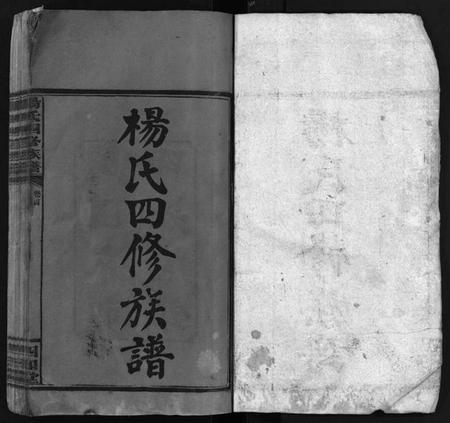 楊氏四修族譜
楊氏四修族譜